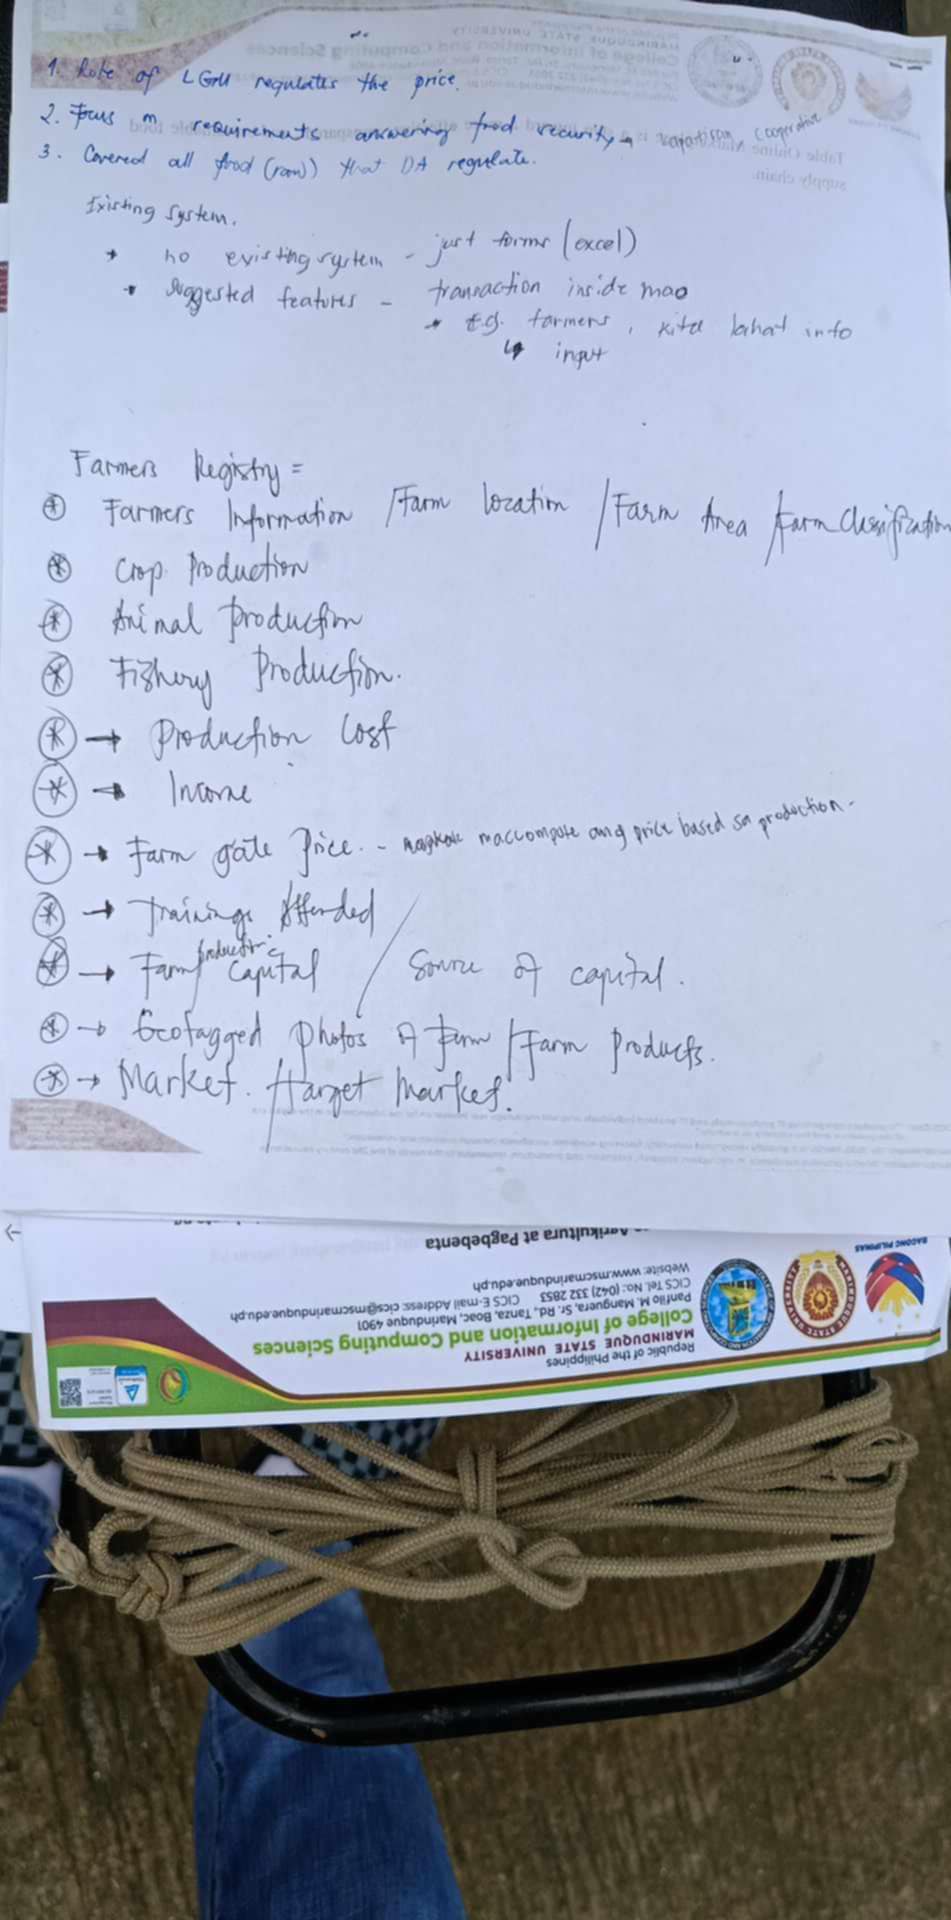 1. Role of LGU regulates the price.
2. Focus on requirements answering food security → cooperative
3. Covered all food (raw) that DA regulate.
Existing system.
* no existing system - just forms (excel)
* Suggested features - transaction inside mao
* E.g. farmers, kita lahat info
↳ input
Farmers Registry =
* Farmers Information / Farm location / Farm Area / Farm Classification
* Crop Production
* Animal Production
* Fishery Production.
* → Production Cost
* → Income
* → Farm gate Price. - maccompute ang price based sa production.
* → Trainings Attended
* → Farm production Capital / Source of capital.
* → Geotagged photos of Farm / Farm Products.
* → Market. / target market.
Agrikultura at Pagbebenta
BAGONG PILIPINAS
Republic of the Philippines
MARINDUQUE STATE UNIVERSITY
College of Information and Computing Sciences
Panfilo M. Manguera, Sr. Rd., Tanza, Boac, Marinduque 4901
CICS Tel. No.: (042) 332 2853 CICS E-mail Address: cics@mscmarinduque.edu.ph
Website: www.mscmarinduque.edu.ph